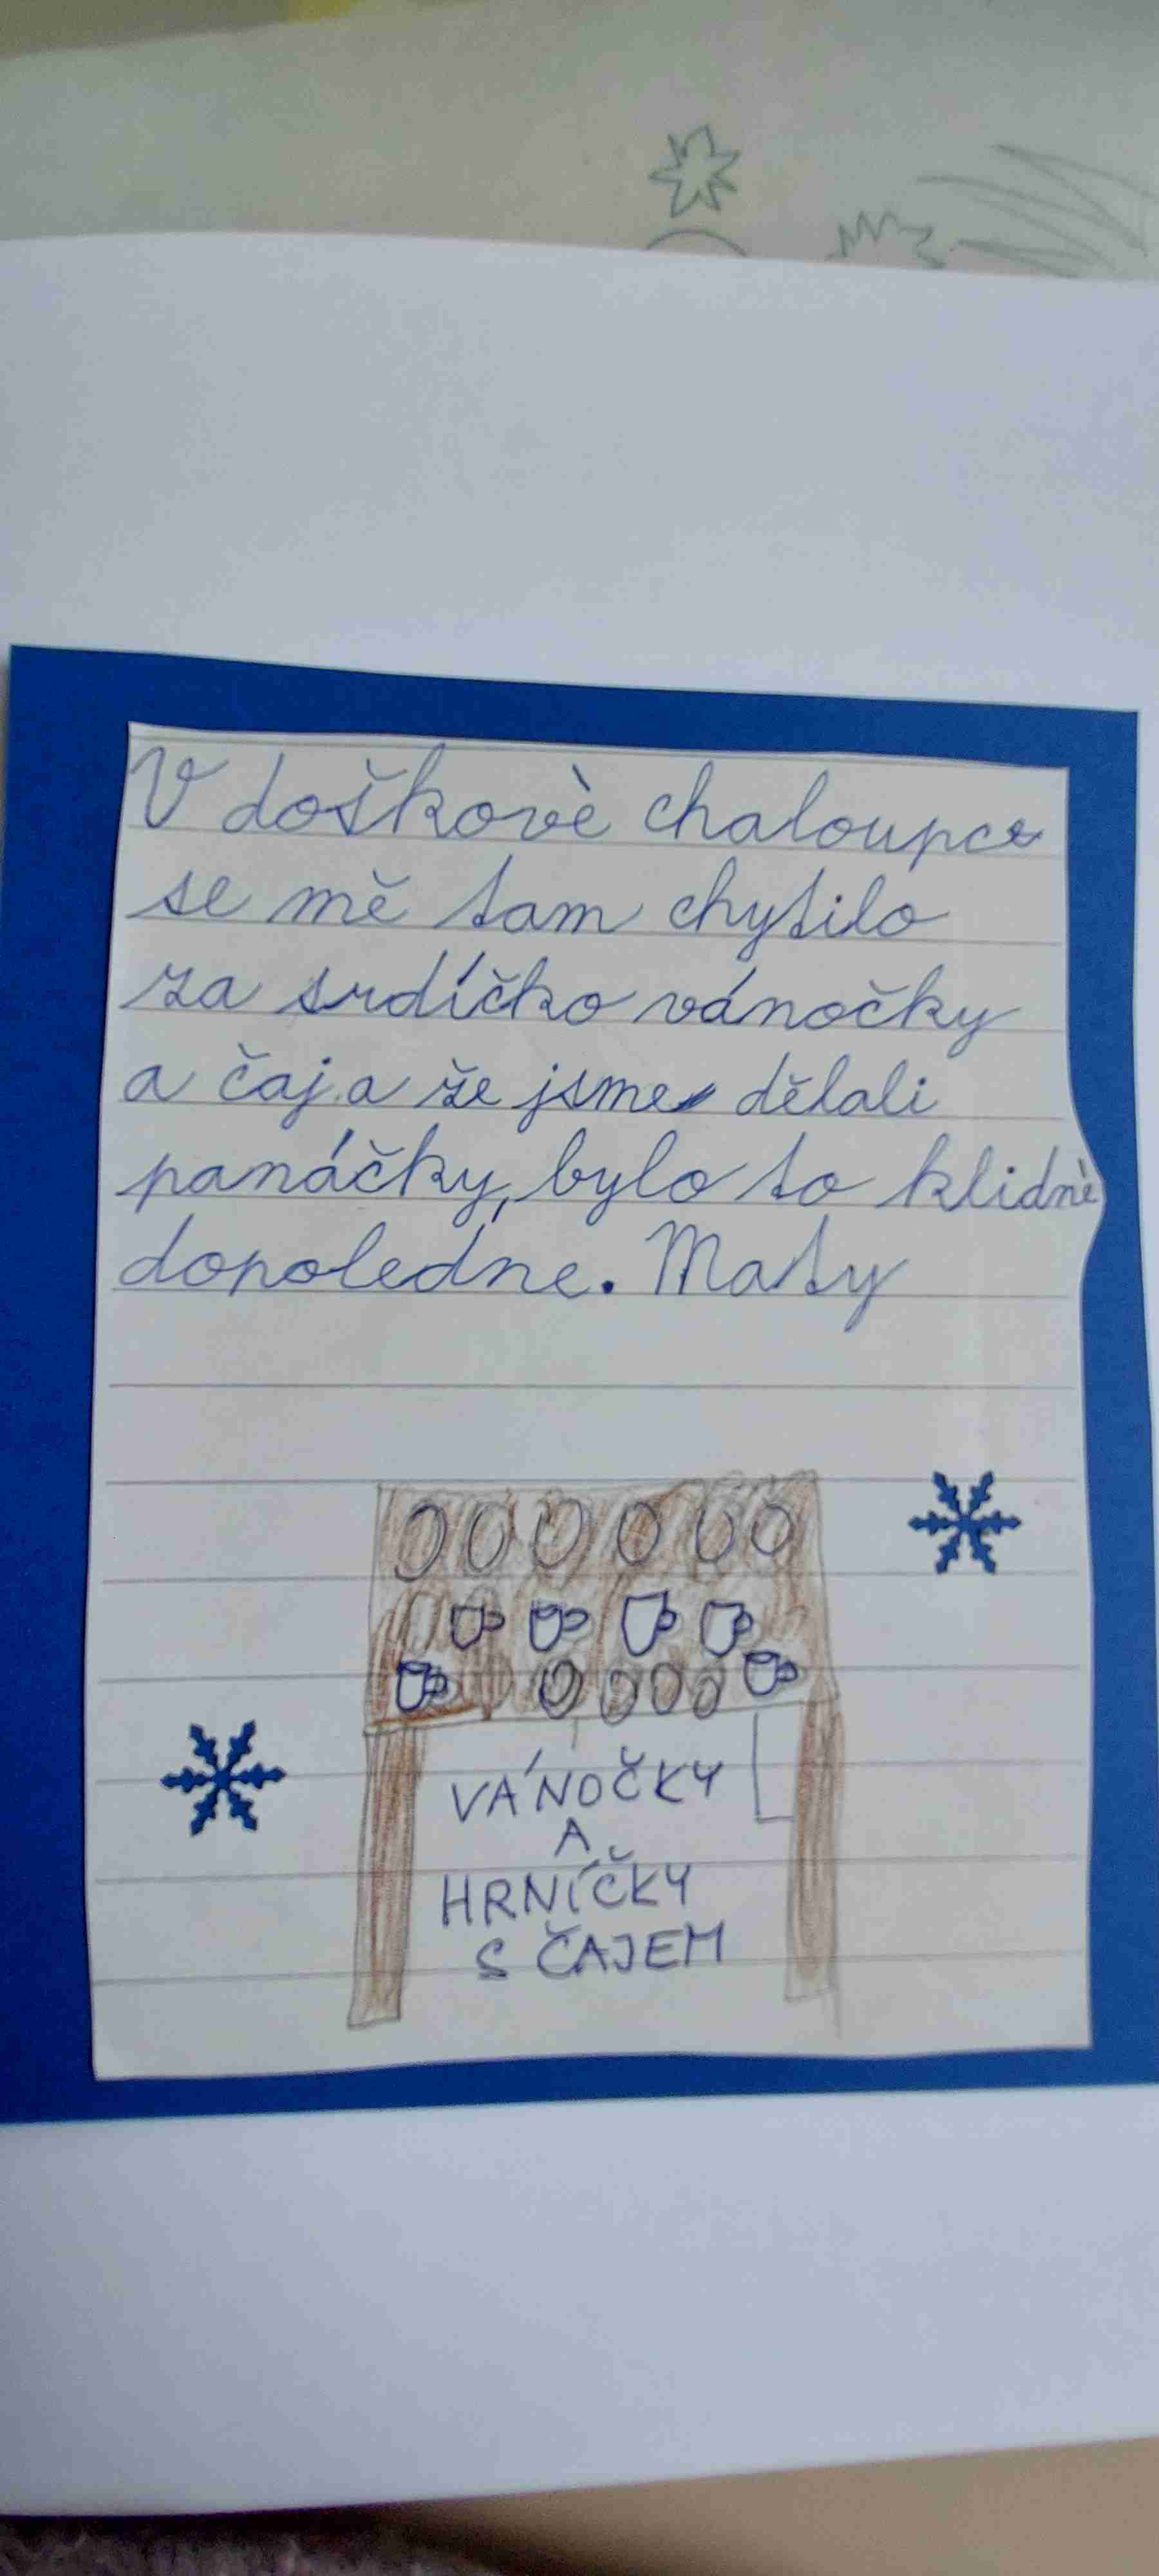 V doškovè chaloupce
se mě tam chytilo
za srdíčko vánočky
a čaj a že jsme dělali
panáčky, bylo to klidnè
dopoledne. Maty
VÁNOČKY
A
HRNÍČKY
S ČAJEM